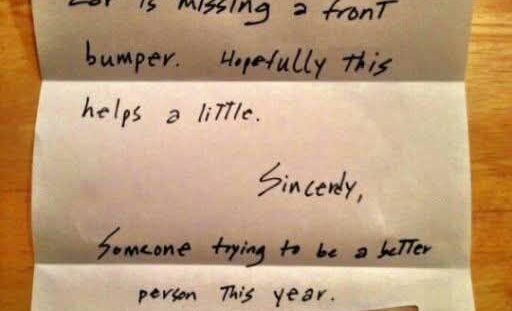 car is missing a front
bumper. Hopefully this
helps a little.
Sincerely,
Someone trying to be a better
person This year.